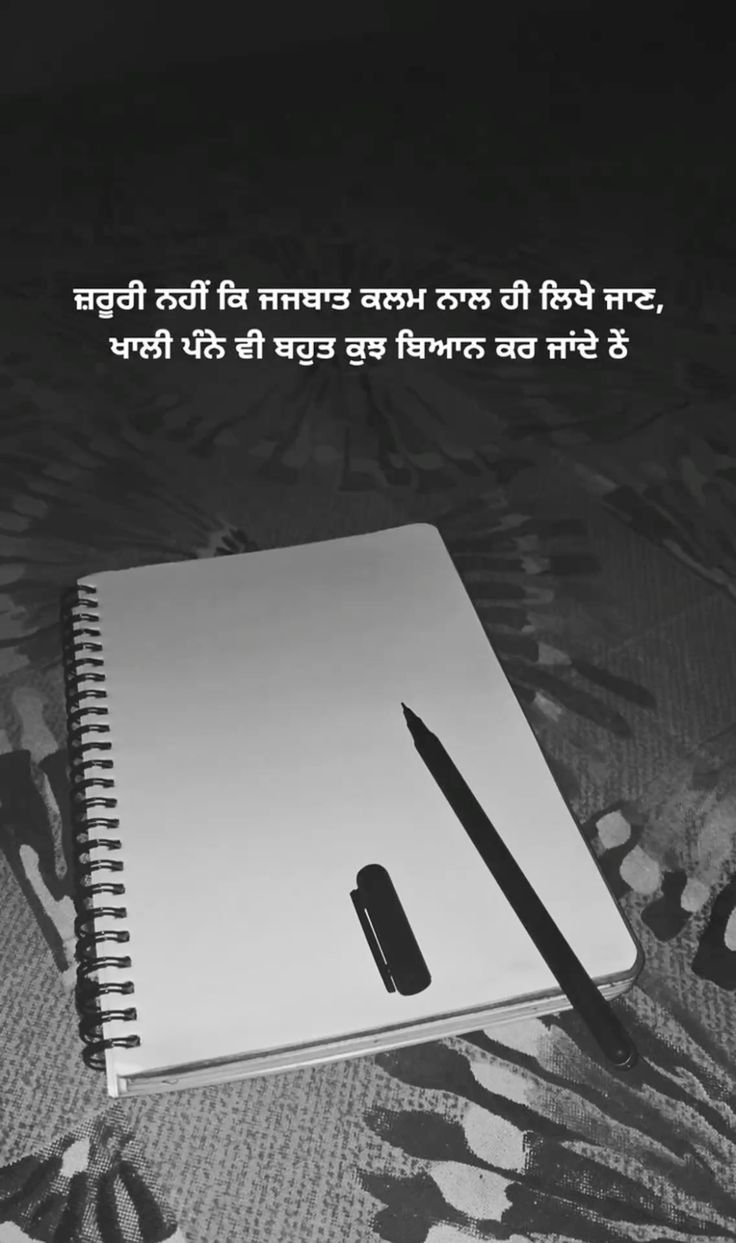 ਜ਼ਰੂਰੀ ਨਹੀਂ ਕਿ ਜਜਬਾਤ ਕਲਮ ਨਾਲ ਹੀ ਲਿਖੇ ਜਾਣ,
ਖਾਲੀ ਪੰਨੇ ਵੀ ਬਹੁਤ ਕੁਝ ਬਿਆਨ ਕਰ ਜਾਂਦੇ ਨੇਂ